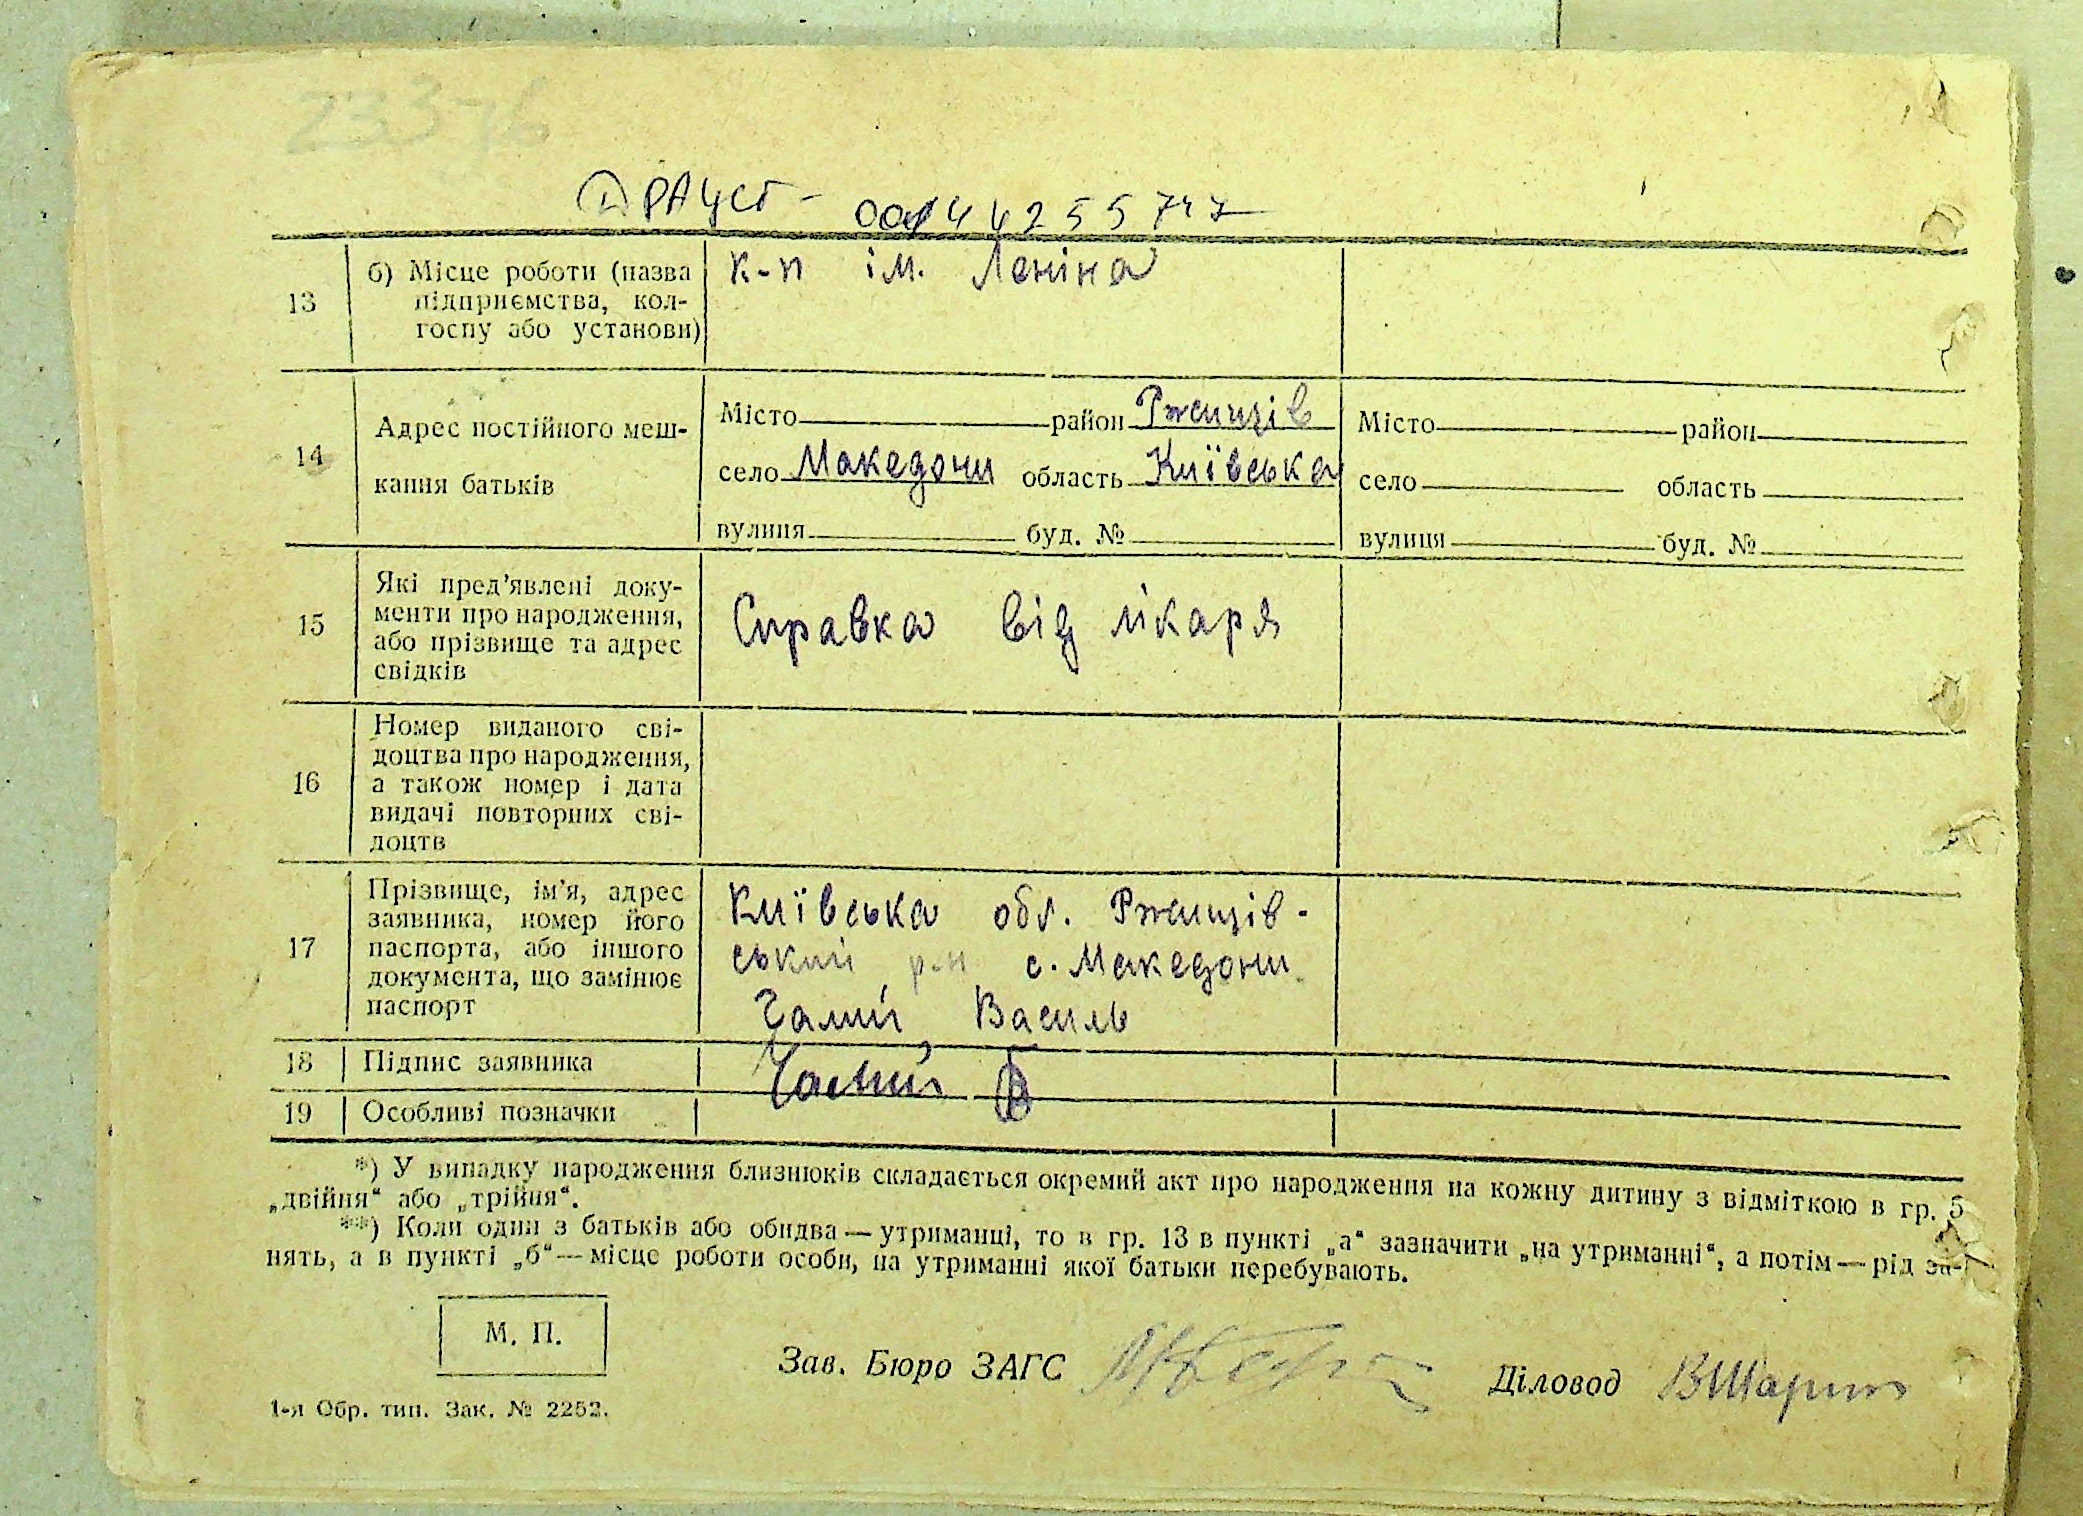 23376
ДРАЦСГ - 00144255747
13
б) Місце роботи (назва підприємства, кол-
госпу або установи)
к-п ім. Леніна
14
Адрес постійного меш-
кання батьків
Місто район Ржищів
село Македони область Київська
вулиця буд. №
Місто район
село область
вулиця буд. №
15
Які пред'явлені доку-
менти про народження,
або прізвище та адрес
свідків
Справка від лікаря
16
Номер виданого сві-
доцтва про народження,
а також номер і дата
видачі повторних сві-
доцтв
17
Прізвище, ім'я, адрес
заявника, номер його
паспорта, або іншого
документа, що замінює
паспорт
Київська обл. Ржищів-
ський р-н с. Македони
Чалий Василь
18 Підпис заявника
Чалий В
19 Особливі позначки
*) У випадку народження близнюків складається окремий акт про народження на кожну дитину з відміткою в гр. 5
„двійня“ або „трійня“.
**) Коли один з батьків або обидва — утриманці, то в гр. 13 в пункті „а“ зазначити „на утриманні“, а потім — рід за-
нять, а в пункті „б“ — місце роботи особи, на утриманні якої батьки перебувають.
М. П.
Зав. Бюро ЗАГС
Діловод
1-я Обр. тип. Зак. № 2252.